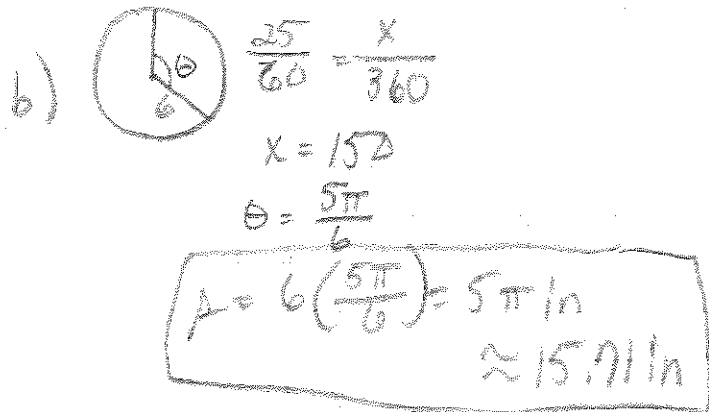 b) θ 6 25/60 = x/360
x = 150
θ = 5π/6
s = 6(5π/6) = 5π in
≈ 15.71 in